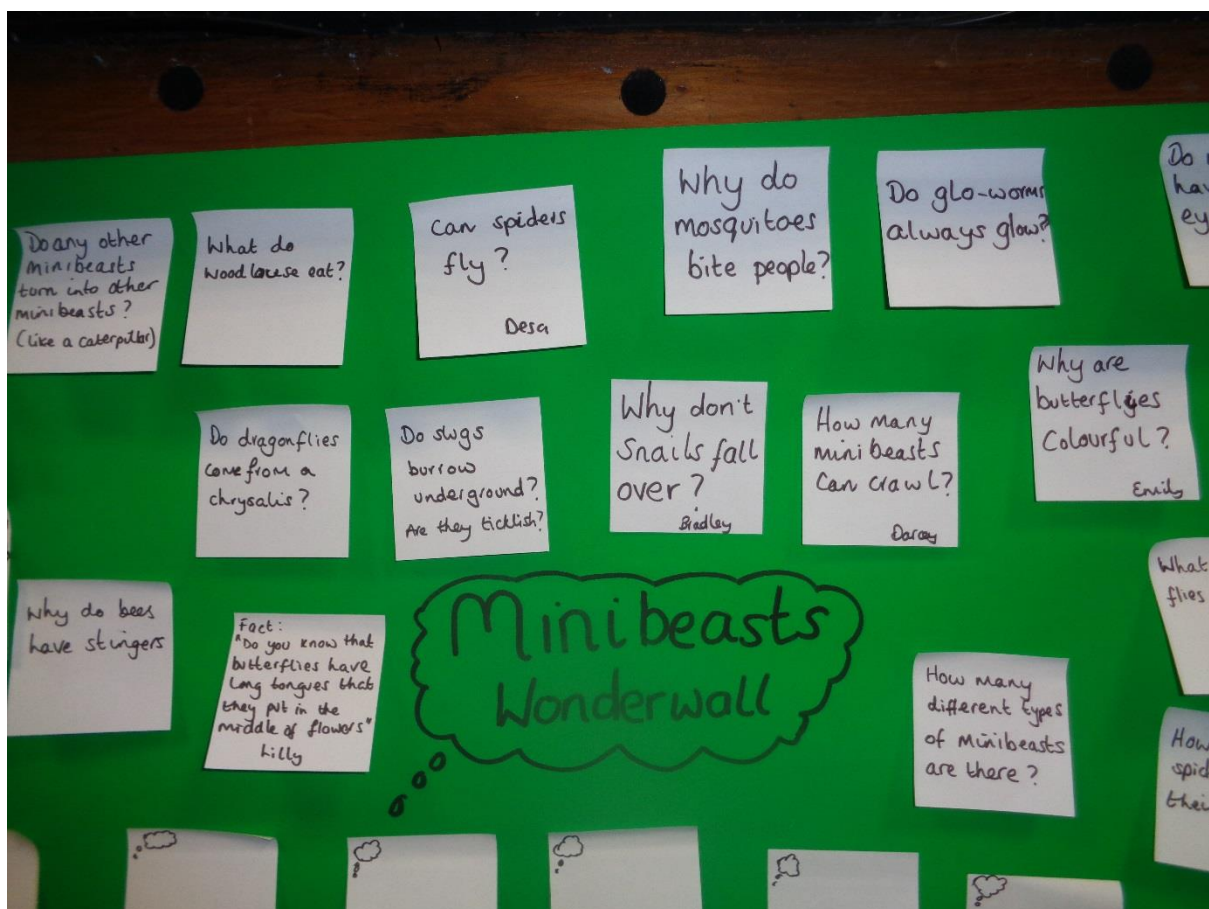 Do any other
minibeasts
turn into other
minibeasts?
(like a caterpillar)
What do
woodlouse eat?
Can spiders
fly?
Desa
Why do
mosquitoes
bite people?
Do glo-worms
always glow?
Do
hav
ey
Do dragonflies
come from a
chrysalis?
Do slugs
burrow
underground?
Are they ticklish?
Why don't
Snails fall
over?
Bradley
How many
minibeasts
Can crawl?
Darcey
Why are
butterflyes
Colourful?
Emily
Why do bees
have stingers
Fact:
"Do you know that
butterflies have
long tongues that
they put in the
middle of flowers"
Lilly
Minibeasts
Wonderwall
What
flies
How many
different types
of Minibeasts
are there?
How
spid
thei